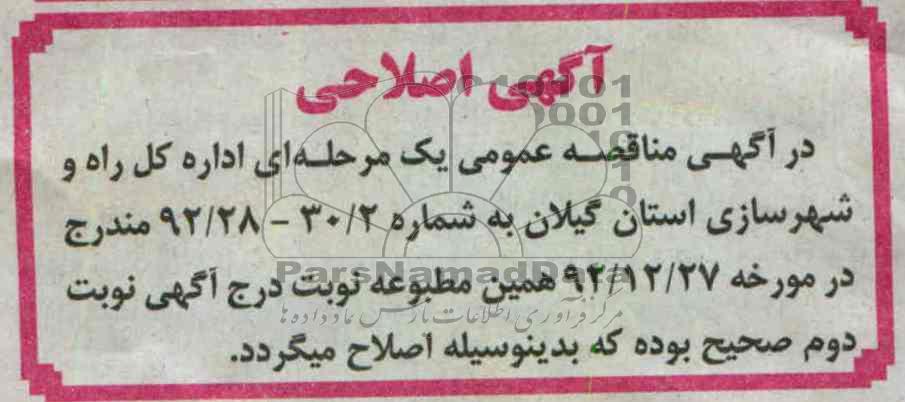 آگهی اصلاحی
در آگهی مناقصه عمومی یک مرحله‌ای اداره کل راه و
شهرسازی استان گیلان به شماره ۳۰/۲ – ۹۲/۲۸ مندرج
در مورخه ۹۲/۱۲/۲۷ همین مطبوعه نوبت درج آگهی نوبت
دوم صحیح بوده که بدینوسیله اصلاح میگردد.
ParsNamadData
مرکز فرآوری اطلاعات پارس نماد داده ها